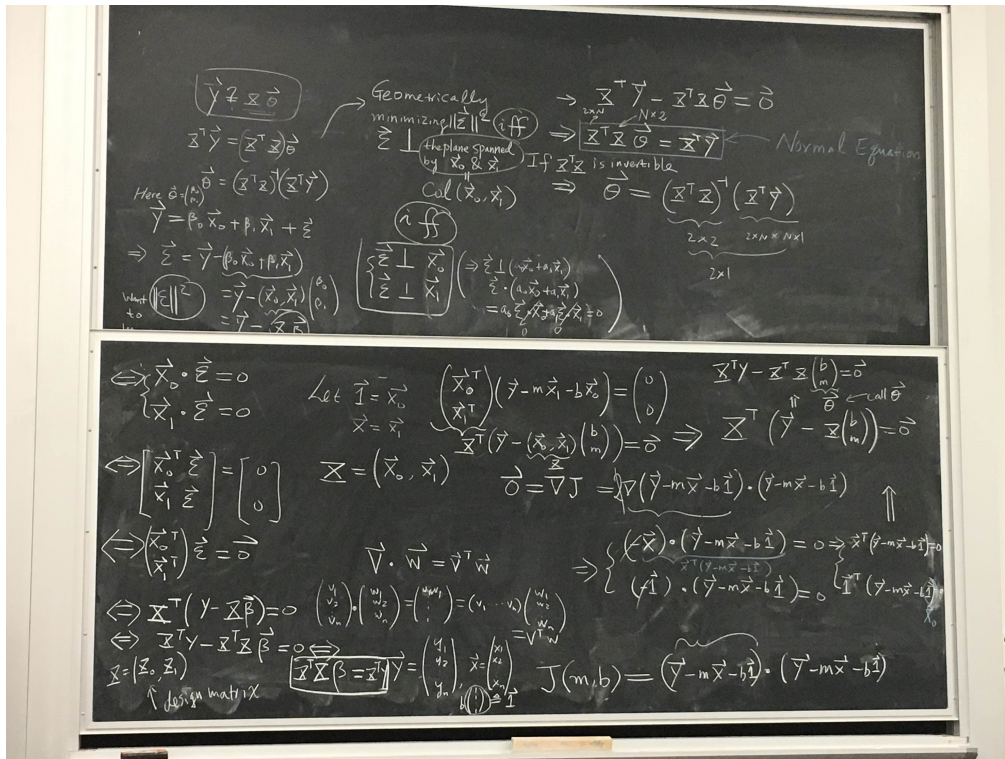 y⃗ ≠ 𝕏θ⃗
𝕏ᵀy⃗ = (𝕏ᵀ𝕏)θ⃗
θ⃗ = (𝕏ᵀ𝕏)⁻¹(𝕏ᵀy⃗)
y⃗ = β₀x⃗₀ + β₁x⃗₁ + ε⃗
⇒ ε⃗ = y⃗ - (β₀x⃗₀ + β₁x⃗₁)
want ‖ε⃗‖² = y⃗ - (x⃗₀, x⃗₁)(β₀ β₁)
to = y⃗ - 𝕏β⃗
→ Geometrically
minimizing ‖ε⃗‖ iff
ε⃗ ⊥ the plane spanned
by x⃗₀ & x⃗₁
Col(x⃗₀, x⃗₁)
iff
{ ε⃗ ⊥ x⃗₀
ε⃗ ⊥ x⃗₁
(⇒ ε⃗ ⊥ (a₀x⃗₀ + a₁x⃗₁)
ε⃗ · (a₀x⃗₀ + a₁x⃗₁)
= a₀ε⃗·x⃗₀ + a₁ε⃗·x⃗₁ = 0)
0 0
→ 𝕏ᵀy⃗ - 𝕏ᵀ𝕏θ⃗ = 0⃗
2×N N×2
⇒ 𝕏ᵀ𝕏θ⃗ = 𝕏ᵀy⃗ ← Normal Equation
If 𝕏ᵀ𝕏 is invertible
⇒ θ⃗ = (𝕏ᵀ𝕏)⁻¹(𝕏ᵀy⃗)
2×2 2×N × N×1
2×1
⇔ { x⃗₀ · ε⃗ = 0
x⃗₁ · ε⃗ = 0
⇔ [x⃗₀ᵀ ε⃗
x⃗₁ ε⃗] = [0
0]
⇔ (x⃗₀ᵀ
x⃗₁ᵀ) ε⃗ = 0⃗
⇔ 𝕏ᵀ(y - 𝕏β⃗) = 0
⇔ 𝕏ᵀy - 𝕏ᵀ𝕏β⃗ = 0 ⇔
𝕏 = (x⃗₀, x⃗₁)
↑ design matrix
𝕏ᵀ𝕏β = 𝕏ᵀy
Let 1⃗ = x⃗₀
x⃗ = x⃗₁
𝕏 = (x⃗₀, x⃗₁)
v⃗ · w⃗ = v⃗ᵀw⃗
(v₁ v₂ ⋮ vₙ) · (w₁ w₂ ⋮ wₙ) = (v₁ ⋯ vₙ)(w₁ w₂ ⋮ wₙ)
= v⃗ᵀw
y⃗ = (y₁ y₂ ⋮ yₙ), x⃗ = (x₁ x₂ ⋮ xₙ)
(x⃗₀ᵀ
x⃗₁ᵀ)(y⃗ - mx⃗₁ - bx⃗₀) = (0
0)
𝕏ᵀ(y⃗ - (x⃗₀, x⃗₁)(b m)) = 0⃗ ⇒ 𝕏ᵀ(y⃗ - 𝕏(b m)) = 0⃗
𝕏
𝕏ᵀy - 𝕏ᵀ𝕏(b m) = 0⃗
⇑ θ⃗ ← call θ⃗
0⃗ = ∇J = 2∇(y⃗ - mx⃗ - b1⃗) · (y⃗ - mx⃗ - b1⃗)
⇑
⇒ { (-x⃗) · (y⃗ - mx⃗ - b1⃗) = 0 ⇒ { x⃗ᵀ(y⃗ - mx⃗ - b1⃗) = 0
x⃗ᵀ(y⃗ - mx⃗ - b1⃗)
(-1⃗) · (y⃗ - mx⃗ - b1⃗) = 0 1⃗ᵀ(y⃗ - mx⃗ - b1⃗)
x⃗₀
J(m,b) = (y⃗ - mx⃗ - b1⃗) · (y⃗ - mx⃗ - b1⃗)